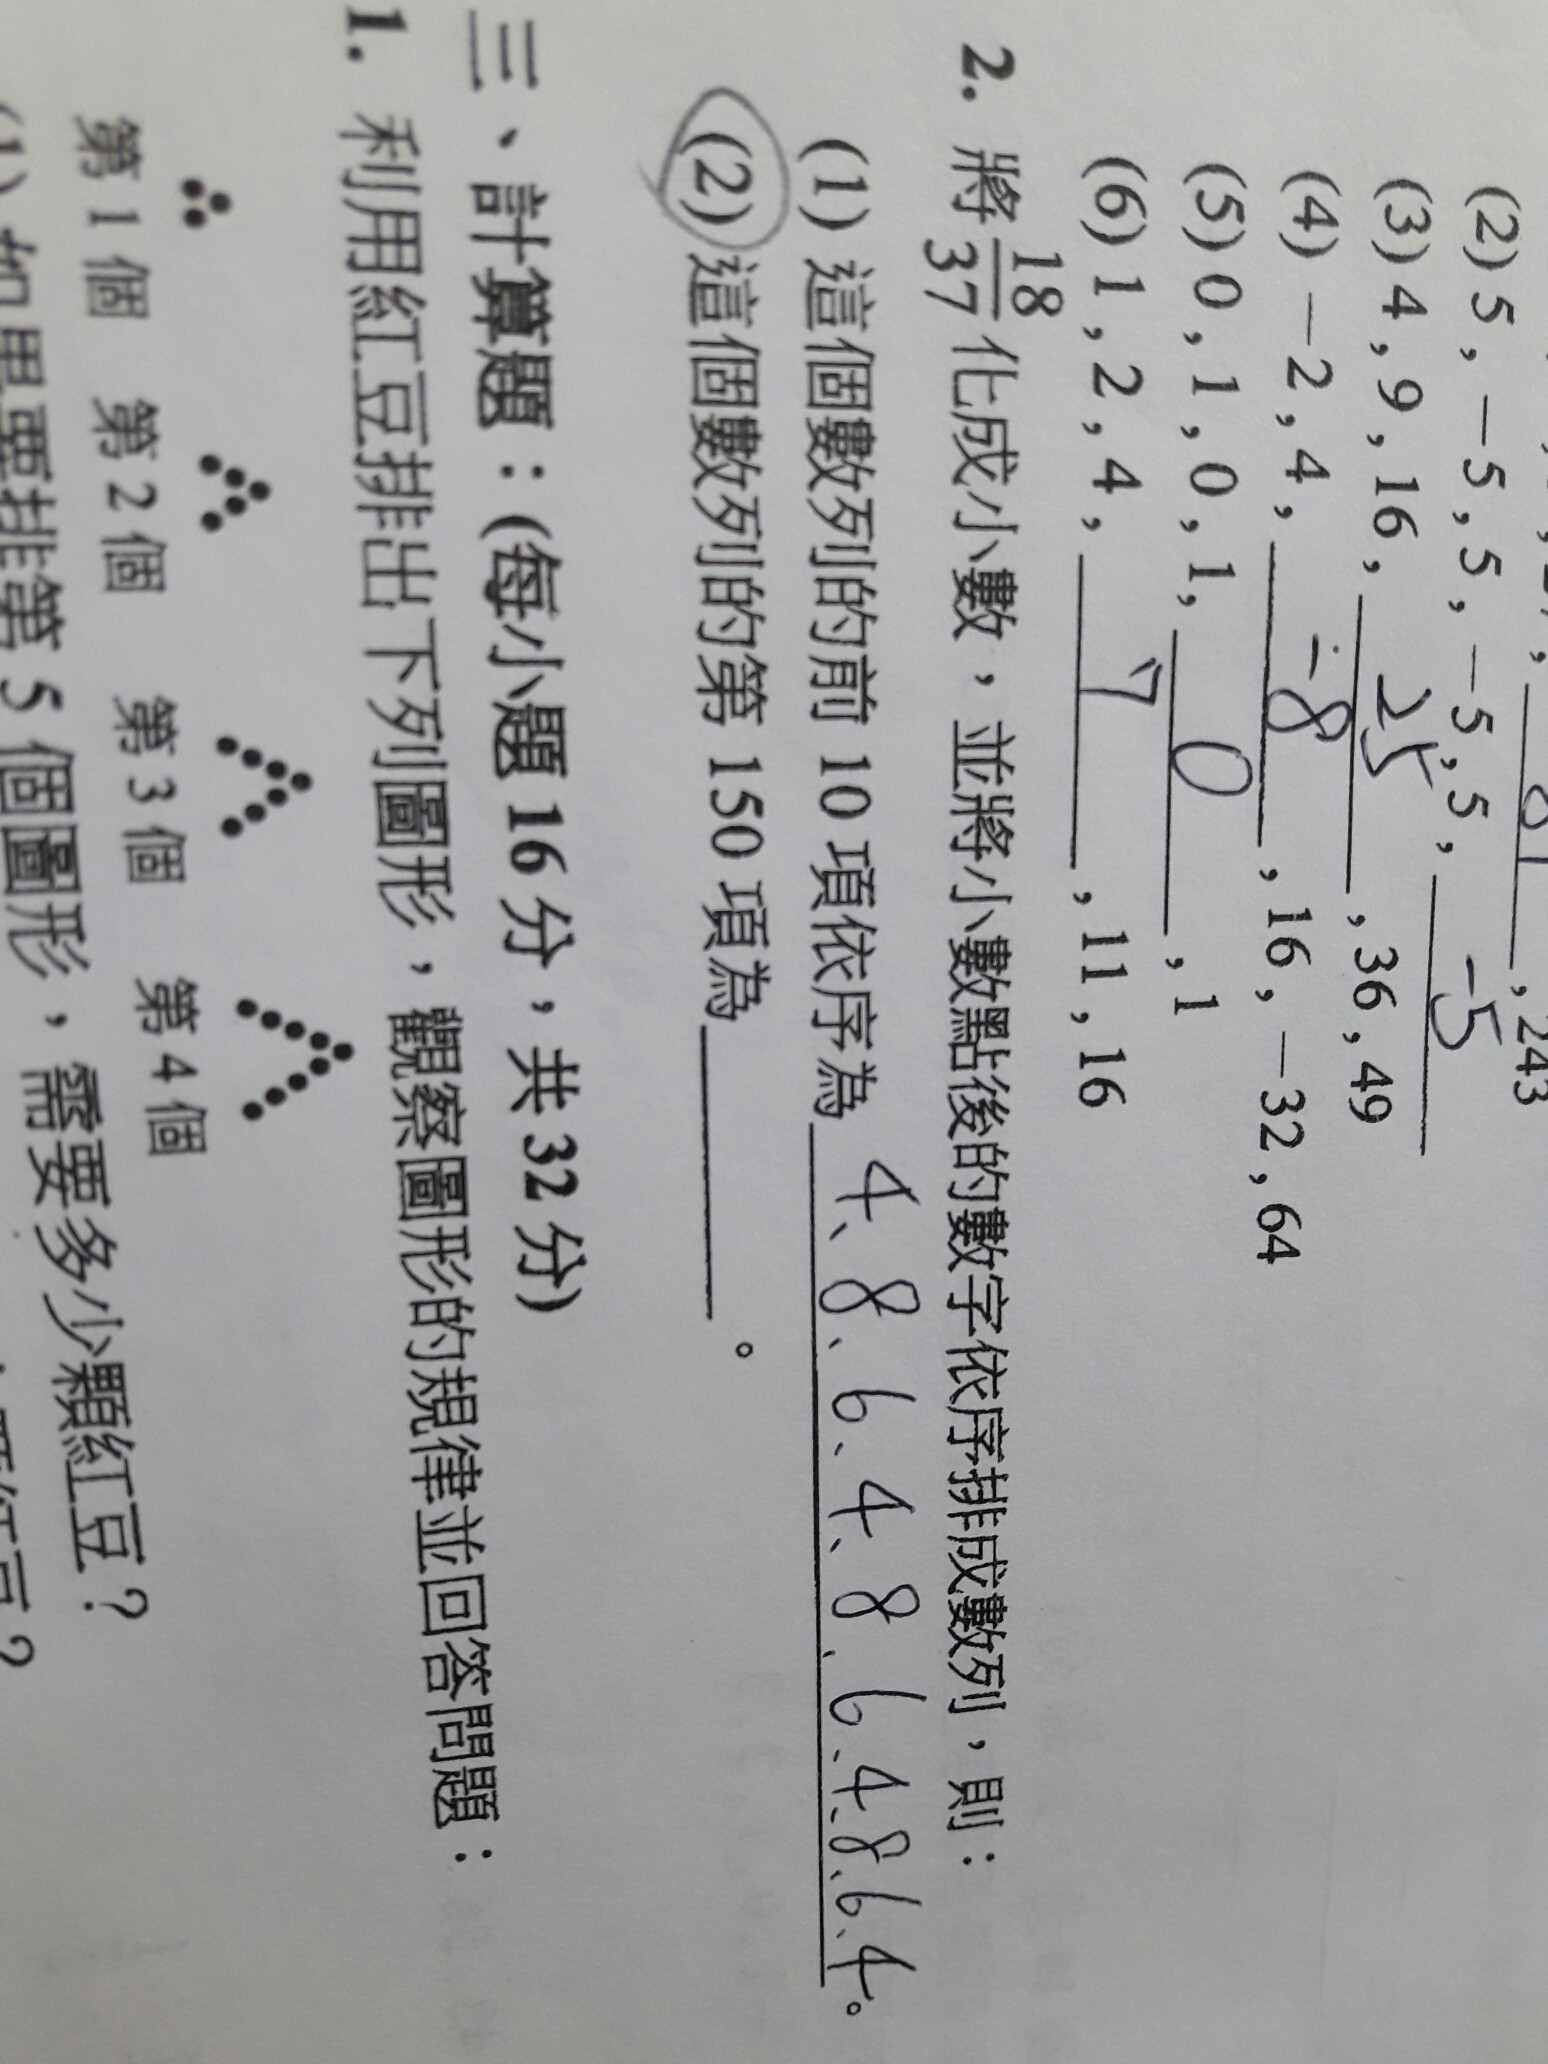 81 , 243
(2) 5 , －5 , 5 , －5 , 5 , -5
(3) 4 , 9 , 16 , 25 , 36 , 49
(4) －2 , 4 , -8 , 16 , －32 , 64
(5) 0 , 1 , 0 , 1 , 0 , 1
(6) 1 , 2 , 4 , 7 , 11 , 16
2. 將 18/37 化成小數，並將小數點後的數字依序排成數列，則：
(1) 這個數列的前 10 項依序為 4、8、6、4、8、6、4、8、6、4。
(2) 這個數列的第 150 項為＿＿＿＿。
三、計算題：(每小題 16 分，共 32 分)
1. 利用紅豆排出下列圖形，觀察圖形的規律並回答問題：
第 1 個 第 2 個 第 3 個 第 4 個
(1) 如果要排第 5 個圖形，需要多少顆紅豆？